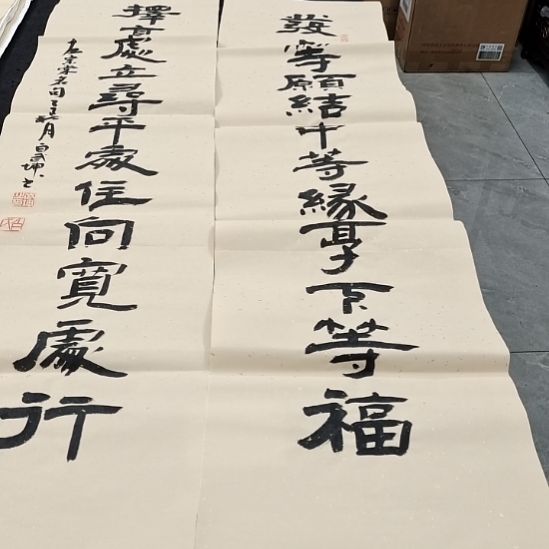 發上等願結中等緣享下等福
擇高處立尋平處住向寬處行
左宗棠名句